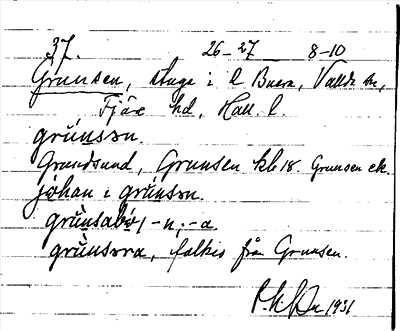 37. 26-27 8-10
Grunsen, stuga i L Buera, Vallda sn,
Fjäre hd, Hall. l.
grùnsən.
Grundsund, Grunsen kb 18. Grunsen ek.
jòhan i grùnsən.
grùnsabó, -n, -a.
grùnsəra, folket från Grunsen.
1931